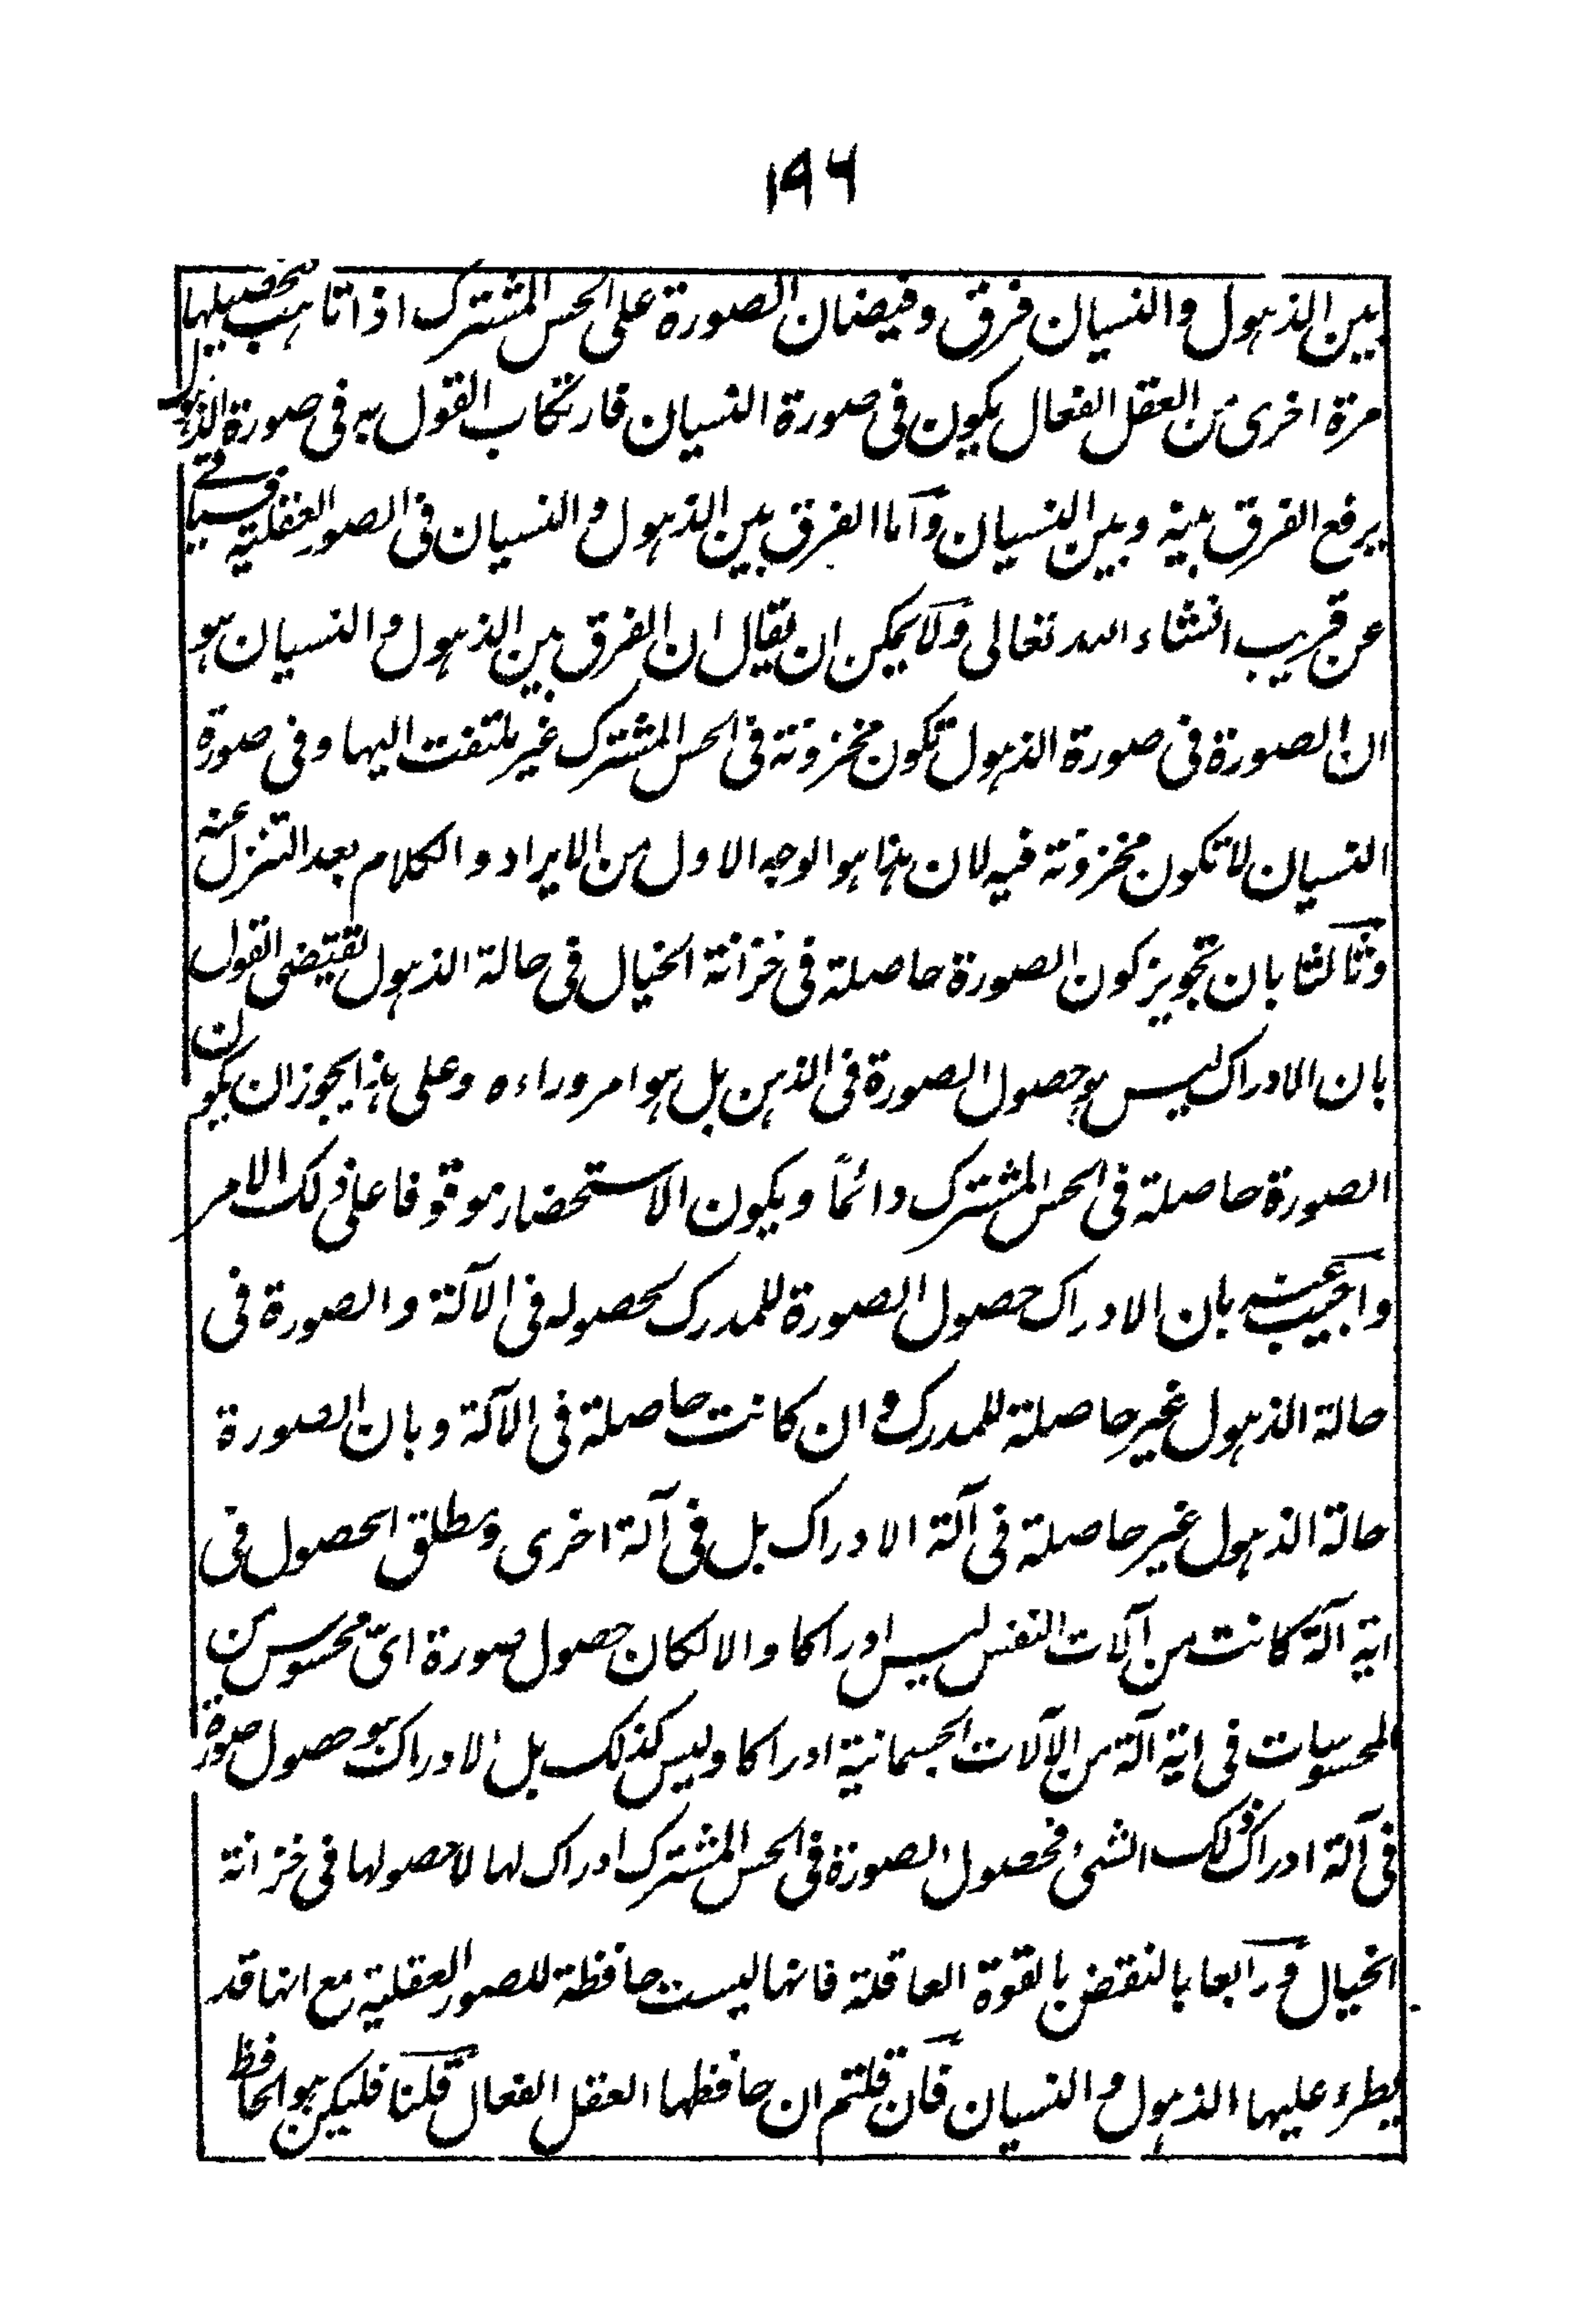 ۱۹۶
بين الذهول والنسيان فرق وفيضان الصورة على الحس المشترك اذا تاهب تحصيلها
مرة اخرى من العقل الفعال يكون فى صورة النسيان فارتكاب القول به فى صورة الذهول
يرفع الفرق بينه وبين النسيان وآما الفرق بين الذهول والنسيان فى الصور العقلية فسياتى
عن قريب انشاء الله تعالى ولا يمكن ان يقال ان الفرق بين الذهول والنسيان هو
ان الصورة فى صورة الذهول تكون مخزونة فى الحس المشترك غير ملتفت اليها وفى صورة
النسيان لا تكون مخزونة فيه لان هذا هو الوجه الاول من الايراد والكلام بعد التنزل عنه
وثالثا بان تجويز كون الصورة حاصلة فى خزانة الخيال فى حالة الذهول يقتضى القول
بان الادراك ليس هو حصول الصورة فى الذهن بل هو امر وراءه وعلى هذا يجوز ان يكون
الصورة حاصلة فى الحس المشترك دائماً ويكون الاستحضار موقوفا على ذلك الامر
واجيب عنه بان الادراك حصول الصورة للمدرك لحصوله فى الآلة والصورة فى
حالة الذهول غير حاصلة للمدرك وان كانت حاصلة فى الآلة وبان الصورة
حالة الذهول غير حاصلة فى آلة الادراك بل فى آلة اخرى ومطلق الحصول فى
اية آلة كانت من آلات النفس ليس ادراكا والا لكان حصول صورة اىّ محسوس من
المحسوسات فى اية آلة من الآلات الجسمانية ادراكا وليس كذلك بل الادراك هو حصول صورة
فى آلة ادراك ذلك الشئ فحصول الصورة فى الحس المشترك ادراك لها لا حصولها فى خزانة
الخيال ورابعا بالنقض بالقوة العاقلة فانها ليست حافظة للصور العقلية مع انها قد
يطرء عليها الذهول والنسيان فان قلتم ان حافظها العقل الفعال قلنا فليكن هو الحافظ